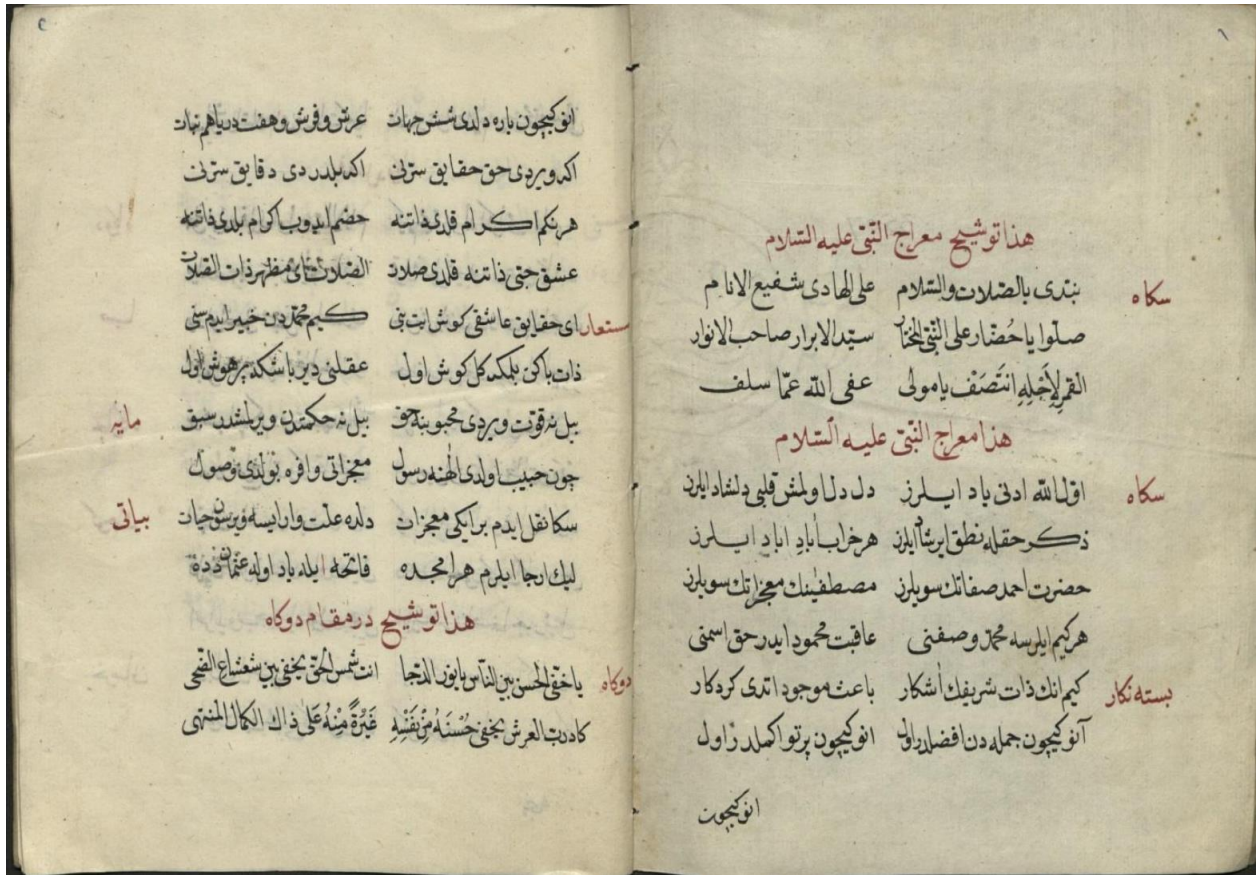 ١
هذا توشيح معراج النبى عليه السلام
سكاه
نبتدى بالصلات والسلام على الهادى شفيع الانام
صلوا يا حضار على النبى المختار سيد الابرار صاحب الانوار
القمر لاجله انتصف يا مولى عفى الله عما سلف
هذا معراج النبى عليه السلام
سكاه
اول الله ادنى ياد ايلرز دل دلا ولمش قلبى دلشاد ايلرز
ذكر حقله نطق ايرشاد ايلرز هر خراب اباد اباد ايلرز
حضرت احمد صفاتك سويلرز مصطفينك معجزاتك سويلرز
هر كيم ايلرسه محمد وصفنى عاقبت محمود ايدر حق اسمنى
بسته نكار
كيم انك ذات شريفك اشكار باعث موجود اتدى كردكار
آنوكيچون جمله دن افضلدر اول انوكيچون پرتو اكملدر اول
انوكيچون
٢
انوكيچون ياره دلدى شش جهات عرش وفرش وهفت دريا هم نبات
اكه ويردى حق حقايق سرنى اكه بلدردى دقايق سرنى
هر نكم اكرام قلدى ذاتنه خصم ايدوب اكرام بلدى ذاتنه
عشق حتى ذاتنه قلدى صلات الصلات اى مظهر ذات الصلات
مستعار
اى حقايق عاشقى كوش ايت بنى كيم محمد دن خبير ايدم سنى
ذات پاكن بلمكه كل كوش اول عقلنى دير باشكه پر هوش اول
مايه
بيل نه قوت ويردى محبوبنه حق بيل نه حكمتدن ويرلمشدر سبق
چون حبيب اولدى الهنه رسول معجزاتى وافره بولدى وصول
بياتى
سكا نقل ايدم بر ايكى معجزات دلده علت وار ايسه ويرسون حيات
ليك ارجا ايلرم هر امجده فاتحه ايله ياد اوله عثمان دده
هذا توشيح در مقام دوكاه
دوكاه
يا خفى الحسن بين الناس يا نور الدجا انت شمس الحق يخفى بين شعشاع الضحى
كاد رب العرش يخفى حسنه من نفسه غيرة منه على ذاك الكمال المنتهى